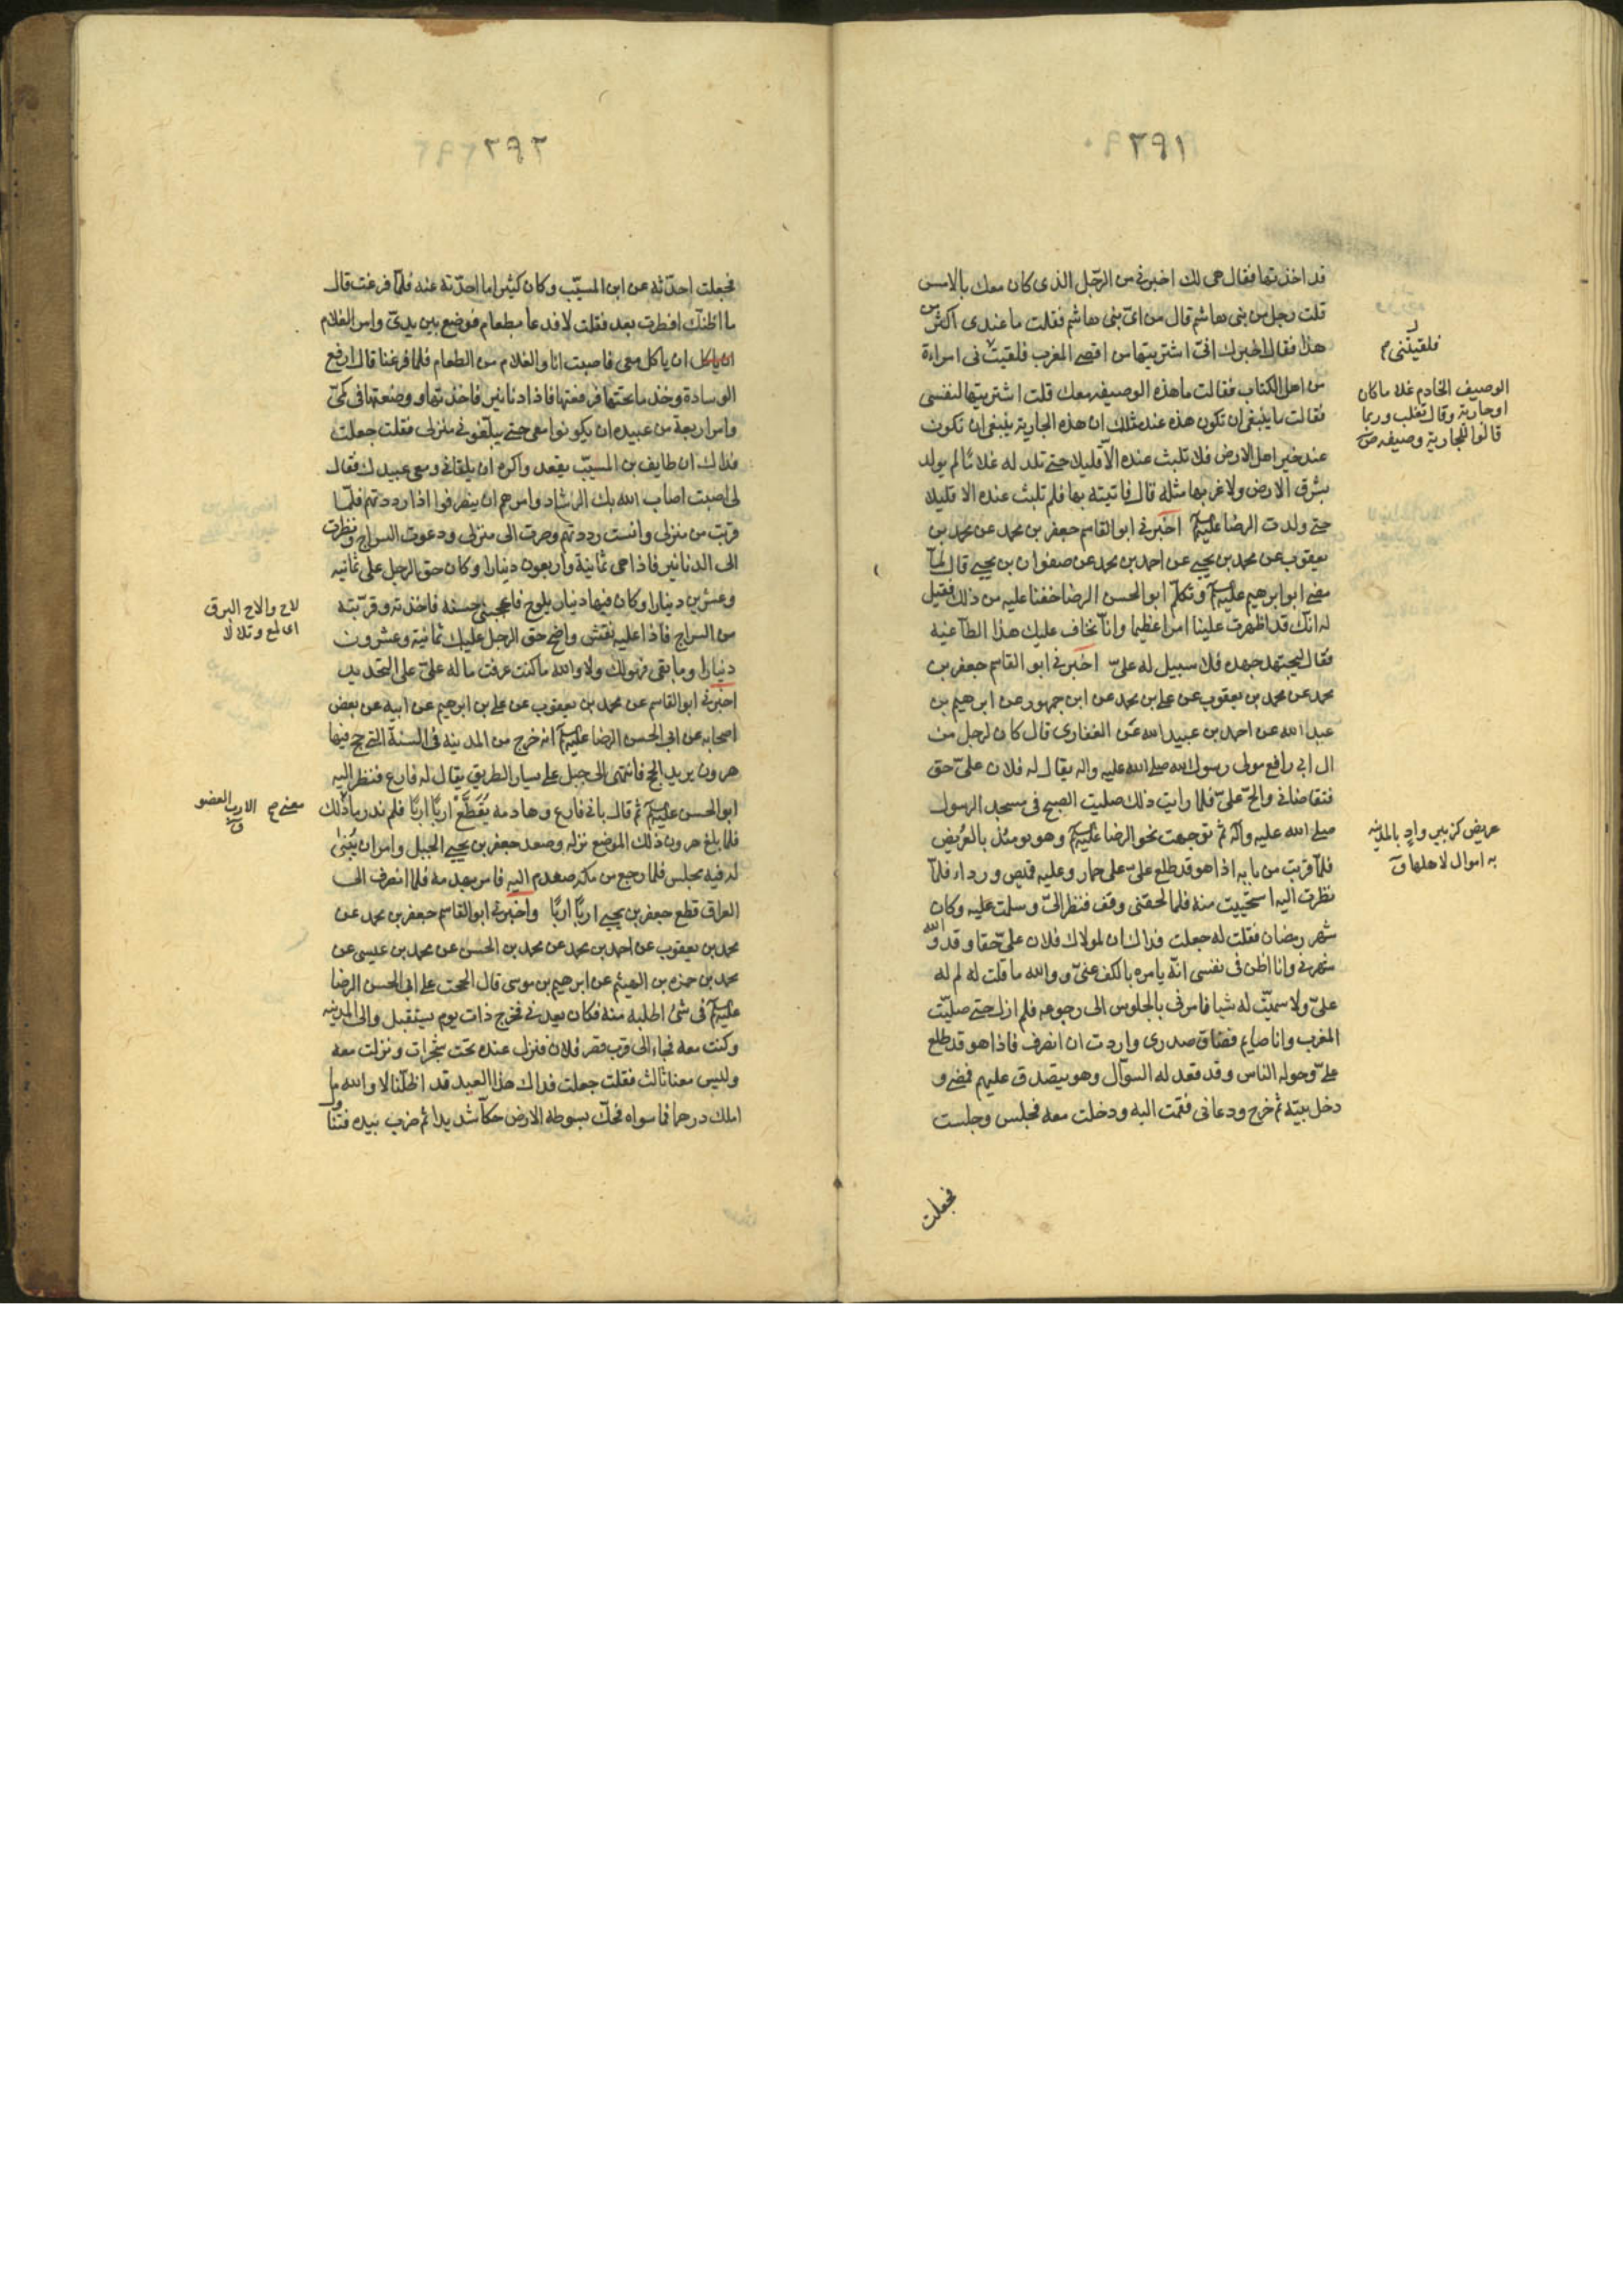 ٢٩١
قد اخذتها فقال هى لك اخبرنى من الرّجل الذى كان معك بالامس
قلت رجل من بنى هاشم قال من اىّ بنى هاشم فقلت ما عندى اكثر من
هذا فقال اخبرك انّى اشتريتها من اقصى المغرب فلقيتنى امراءة
من اهل الكتاب فقالت ما هذه الوصيفه معك قلت اشتريتها لنفسى
فقالت ما ينبغى ان تكون هذه عند مثلك ان هذه الجارية ينبغى ان تكون
عند خير اهل الارض فلا تلبث عنده الّا قليلا حتى تلد له غلامًا لم يولد
بشرق الارض ولا غربها مثله قال فاتيته بها فلم تلبث عنده الا قليلا
حتى ولدت الرضا عليهم اخبرنى ابو القاسم جعفر بن محمد عن محمد بن
يعقوب عن محمد بن يحيى عن احمد بن محمد عن صفوان بن يحيى قال لمّا
مضى ابو ابرهيم عليهم وتكلّم ابو الحسن الرضا خفنا عليه من ذلك فقيل
له انّك قد اظهرت علينا امرا عظيما وانّا نخاف عليك هذا الطاغيه
فقال ليجتهد جهده فلا سبيل له علىّ اخبرنى ابو القاسم جعفر بن
محمد عن محمد بن يعقوب عن على بن محمد عن ابن جمهور عن ابرهيم بن
عبد الله عن احمد بن عبيد الله عن الغفارى قال كان لرجل من
ال ابى رافع مولى رسول الله صلى الله عليه واله يقال له فلان علىّ حق
فتقاضانى والحّ علىّ فلما رايت ذلك صليت الصبح فى مسجد الرسول
صلى الله عليه وآله ثم توجهت نحو الرضا عليهم وهو يومئذ بالعُريض
فلمّا قربت من بابه اذا هو قد طلع علىّ على حمار وعليه قميص ورداء فلمّا
نظرت اليه استحييت منه فلما لحقنى وقف فنظر الىّ وسلمت عليه وكان
شهر رمضان فقلت له جعلت فداك ان لمولاك فلان علىّ حقا وقد والله
شهرنى وانا اظن فى نفسى انّه يامره بالكف عنىّ ووالله ما قلت له لم له
علىّ ولا سميّت له شيا فامرنى بالجلوس الى رجوعه فلم ازل حتى صليّت
المغرب وانا صايم فضاق صدرى واردت ان انصرف فاذا هو قد طلع
علىّ وحوله الناس وقد قعد له السوّال وهو يتصدق عليهم فمضى و
دخل بيته ثم خرج ودعانى فقمت اليه ودخلت معه فجلس وجلست
فجعلت
فلقيتنى م
الوصيف الخادم غلاما كان
او جارية وقال ثعلب وربما
قالوا للجارية وصيفه ص
عريض كزبير وادٍ بالمدينه
به اموال لاهلها ق
٢٩٢
فجعلت احدّثه عن ابن المسيّب وكان كثيرا ما احدّثه عنه فلمّا فرغت قال
ما اظنّك افطرت بعد فقلت لا فدعا بطعام فوضع بين يدىّ وامر الغلام
ان ياكل معى فاصبت انا والغلام من الطعام فلما فرغنا قال ارفع
الوسادة وخذ ما تحتها فرفعتها فاذا دنانير فاخذتها ووضعتها فى كمىّ
وامر اربعة من عبيده ان يكونوا معى حتى يبلّغونى منزلى فقلت جعلت
فداك ان طايف بن المسيّب يقعد واكره ان يلقانى ومعى عبيدك فقال
لى اصبت اصاب الله بك الرشاد وامرهم ان ينصرفوا اذا رددتهم فلمّا
قربت من منزلى وانست رددتهم وصرت الى منزلى ودعوت السراج ونظرت
الى الدنانير فاذا هى ثمانية واربعون دينارا وكان حق الرجل علىّ ثمانيه
وعشرين دينارا وكان فيها دينار يلوح فاعجبنى حسنه فاخذته وقرّبته
من السراج فاذا عليه نقش واضح حق الرجل عليك ثمانية وعشرون
دينارا وما بقى فهو لك ولا والله ما كنت عرفت ما له علىّ على التحديد
اخبرنى ابو القاسم عن محمد بن يعقوب عن على بن ابرهيم عن ابيه عن بعض
اصحابه عن ابى الحسن الرضا عليهم انه خرج من المدينه فى السنة التى حج فيها
هرون يريد الحج فانتهى الى جبل على يسار الطريق يقال له فارع فنظر اليه
ابو الحسن عليهم ثم قال بانى فارع وهادمه يُقَطَّعْ اربًا اربًا فلم ندر ما ذلك
فلما بلغ هرون ذلك الموضع نزله وصعد جعفر بن يحيى الجبل وامر ان يُبْنى
له فيه مجلس فلما رجع من مكه صعدم اليه فامر بهدمه فلما انصرف الى
العراق قطع جعفر بن يحيى اربًا اربًا واخبرنى ابو القاسم جعفر بن محمد عن
محمد بن يعقوب عن احمد بن محمد عن محمد بن الحسن عن محمد بن عيسى عن
محمد بن حمزه بن الهيثم عن ابرهيم بن موسى قال الححت على ابى الحسن الرضا
عليهم فى شئ اطلبه منه فكان يعدنى فخرج ذات يوم يستقبل والى المدينه
وكنت معه فجاء الى قرب قصر فلان فنزل عنده تحت شجرات ونزلت معه
وليس معنا ثالث فقلت جعلت فداك هذا العيد قد اظلّنا لا والله ما
املك درهما فما سواه فحكّ بسوطه الارض حكّا شديدا ثم ضرب بيده فتناول
لاح والاح البرق
اى لمع وتلالا
معنى م الارب العضو
ق